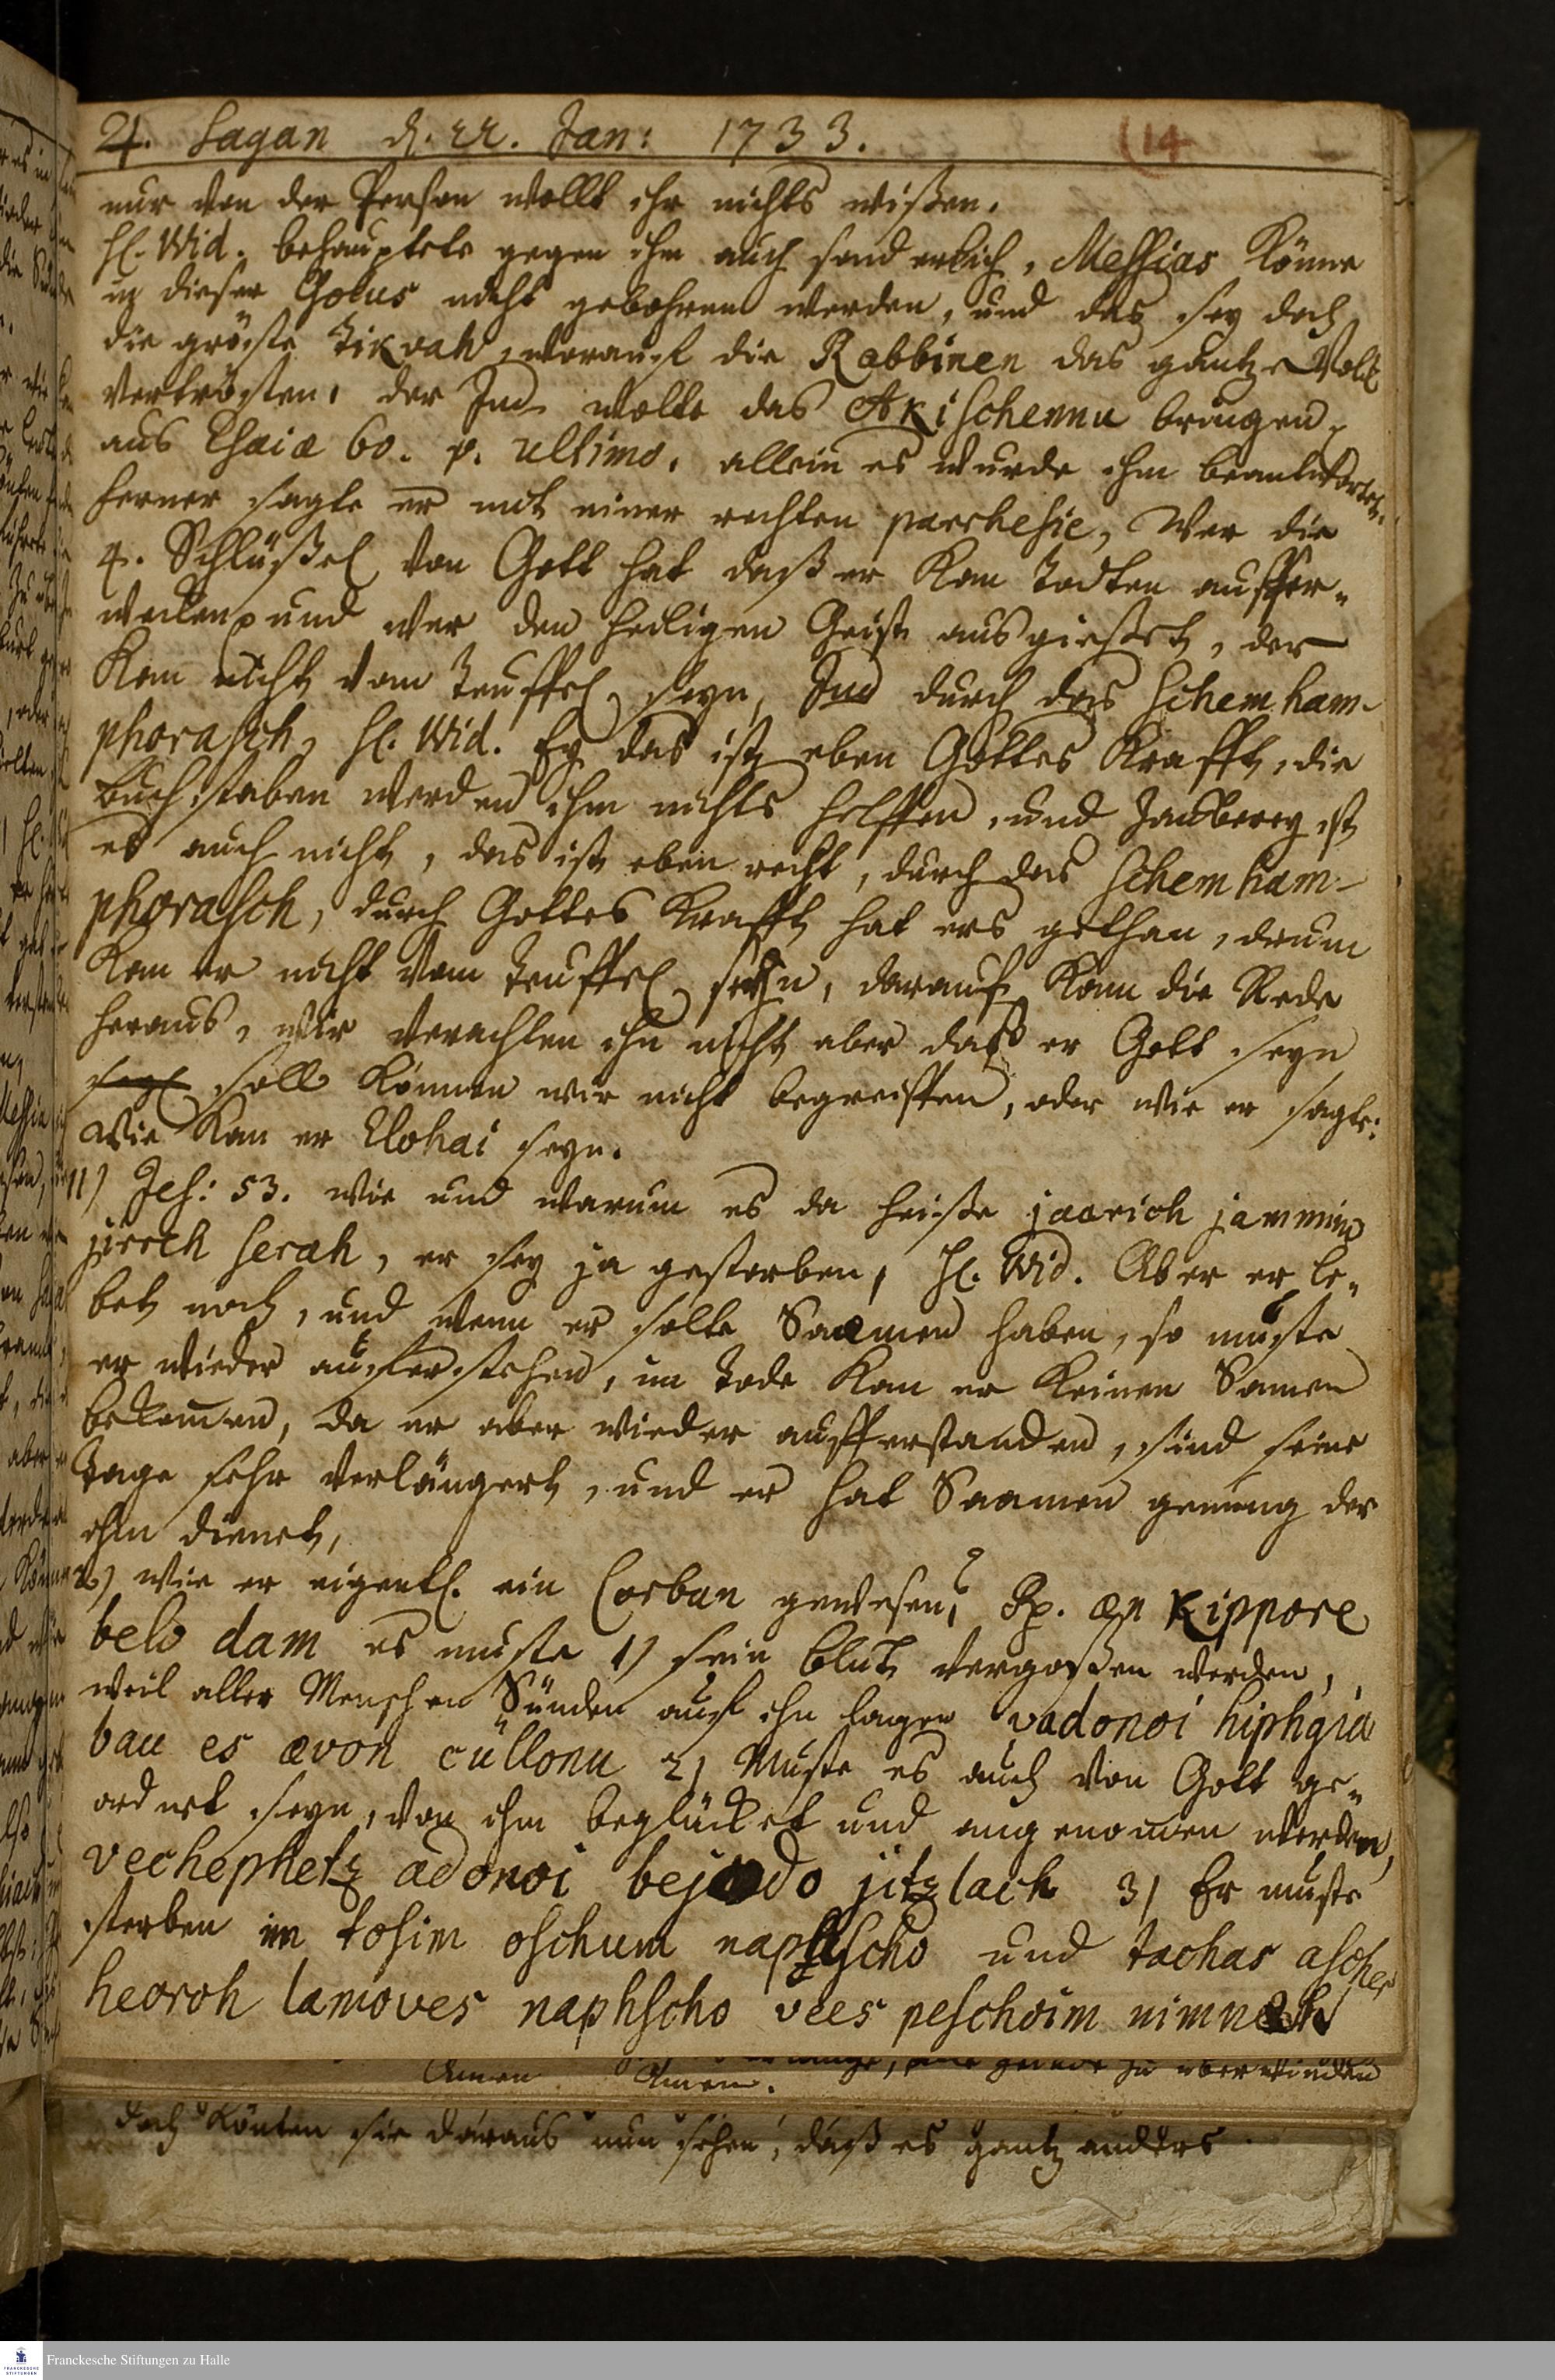 24. Sagan d. 22. Jan: 1733. (14
nur von der Person wollt ihr nichts wißen.
H. Wid. behauptete gegen ihm auch sonderlich, Messias könne
in dieser Golus nicht gebohren werden, und das sey doch
die gröste Tikvah, worauf die Rabbinen das gantze Volk
vertrösten. der Jud wolte das Akischennu bringen,
aus Esaiæ 60. v. ultimo. allein es wurde ihm beantwortet.
ferner sagte er mit einer rechten parrhesie, Wer die
4. Schlüßel von Gott hat daß er kan Todten auffer-
wecken, und wer den heiligen Geist ausgießet, der
kan nicht vom Teuffel seyn, Jud durch das Schemham-
phorasch, H. Wid. Ey das ist eben Gottes Krafft, die
buchstaben werden ihm nichts helffen, und Zauberey ist
es auch nicht, das ist eben recht, durch das Schemham-
phorasch, durch Gottes Krafft hat ers gethan, drum
kan er nicht vom Teuffel seyn, darauf kam die Rede
heraus, wir verachten ihn nicht aber daß er Gott seyn
soll können wir nicht begreiffen, oder wie er sagte:
Wie kan er Elohai seyn.
11) Jes: 53. wie und warum es da heiße jaarich jammim
jireh serah, er sey ja gestorben, H. Wid. Aber er le-
bet noch, und wenn er solte Saamen haben, so muste
er wieder aufferstehen, im Tode kan er keinen Samen
bekommen, da er aber wieder aufferstanden, sind seine
Tage sehr verlängert, und er hat Saamen genung der
ihm dienet,
2) wie er eigentl. ein Corban gewesen? Rp. æn Kippore
belo dam es muste 1) sein Blut vergoßen werden,
weil aller Menschen Sünden auf ihn lagen vadonoi hiphgia
bau es avon cüllonu 2) Muste es auch von Gott ge-
ordnet seyn, von ihm beglücket und angenomen werden,
vechephetz adonoi bejado jitzlach 3) Er muste
sterben im tosim oschum naphscho und tachas ascher
heoroh lamoves naphscho vees peschoim nimnah
Amen Amen. zu überwinden
doch könten sie daraus nun sehen, daß es gantz anders
Franckesche Stiftungen zu Halle